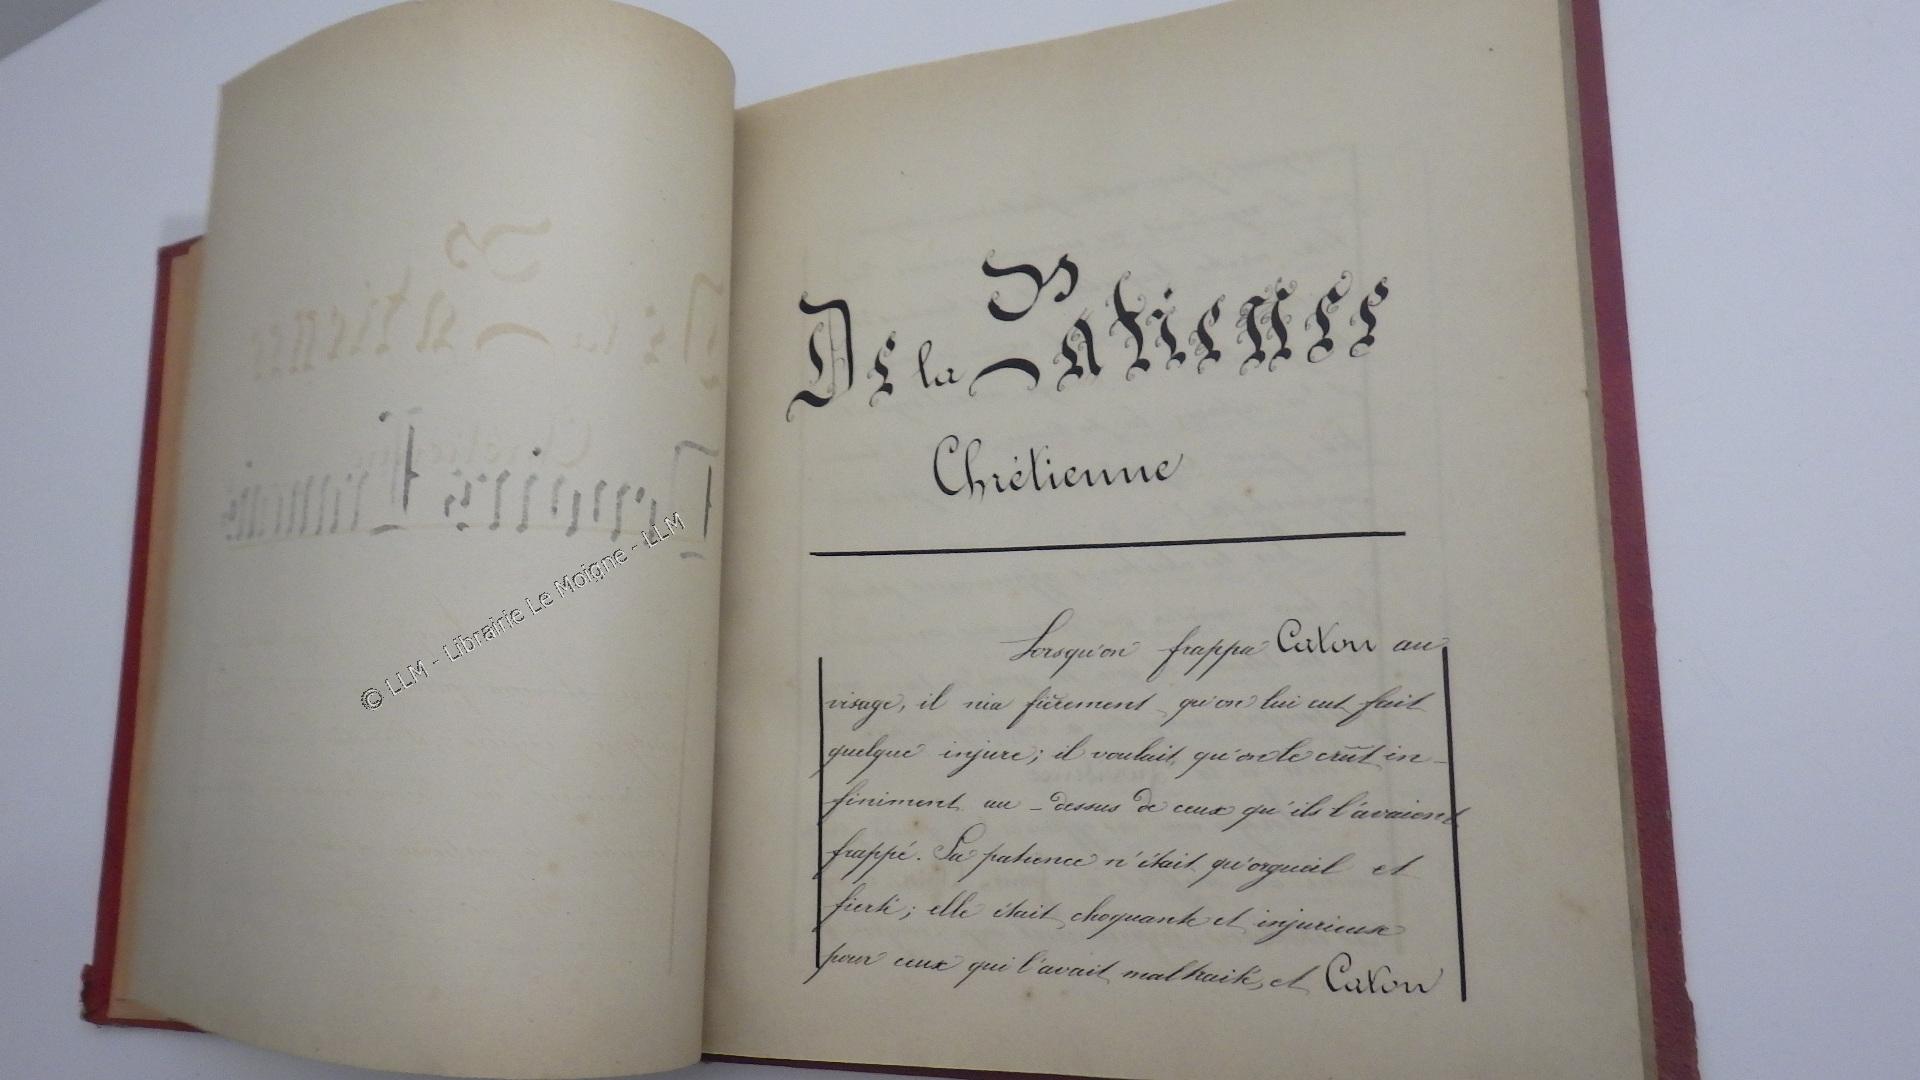 De la Patience
Chrétienne
Lorsqu'on frappa Caton au
visage, il nia fièrement qu'on lui eut fait
quelque injure; il voulait qu'on le crût in-
finiment au-dessus de ceux qu'ils l'avaient
frappé. Sa patience n'était qu'orgueil et
fierté; elle était choquante et injurieuse
pour ceux qui l'avait maltraité, et Caton
Devoirs Français
© LLM - Librairie Le Moigne - LLM